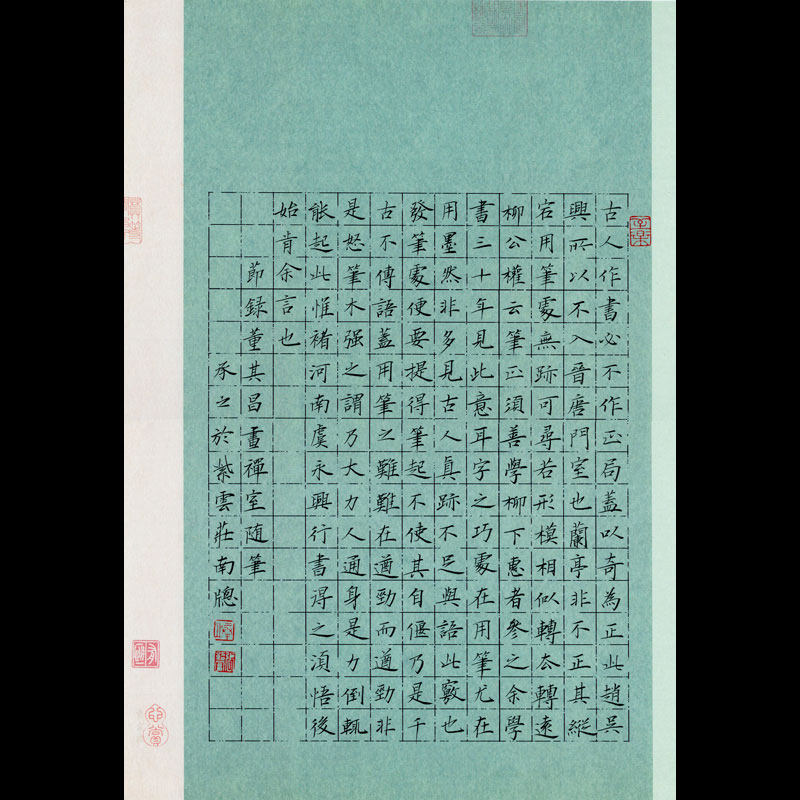 古人作書必不作正局蓋以奇為正此趙吳
興所以不入晉唐門室也蘭亭非不正其縱
宕用筆處無跡可尋若形模相似轉态轉遠
柳公權云筆正須善學柳下惠者參之余學
書三十年見此意耳字之巧處在用筆尤在
用墨然非多見古人真跡不足與語此竅也
發筆處便要提得筆起不使其自偃乃是千
古不傳語蓋用筆之難難在遒勁而遒勁非
是怒筆木强之謂乃大力人通身是力倒輒
能起此惟褚河南虞永興行書得之須悟後
始肯余言也
節録董其昌畫禪室随筆
承之於紫雲莊南牕